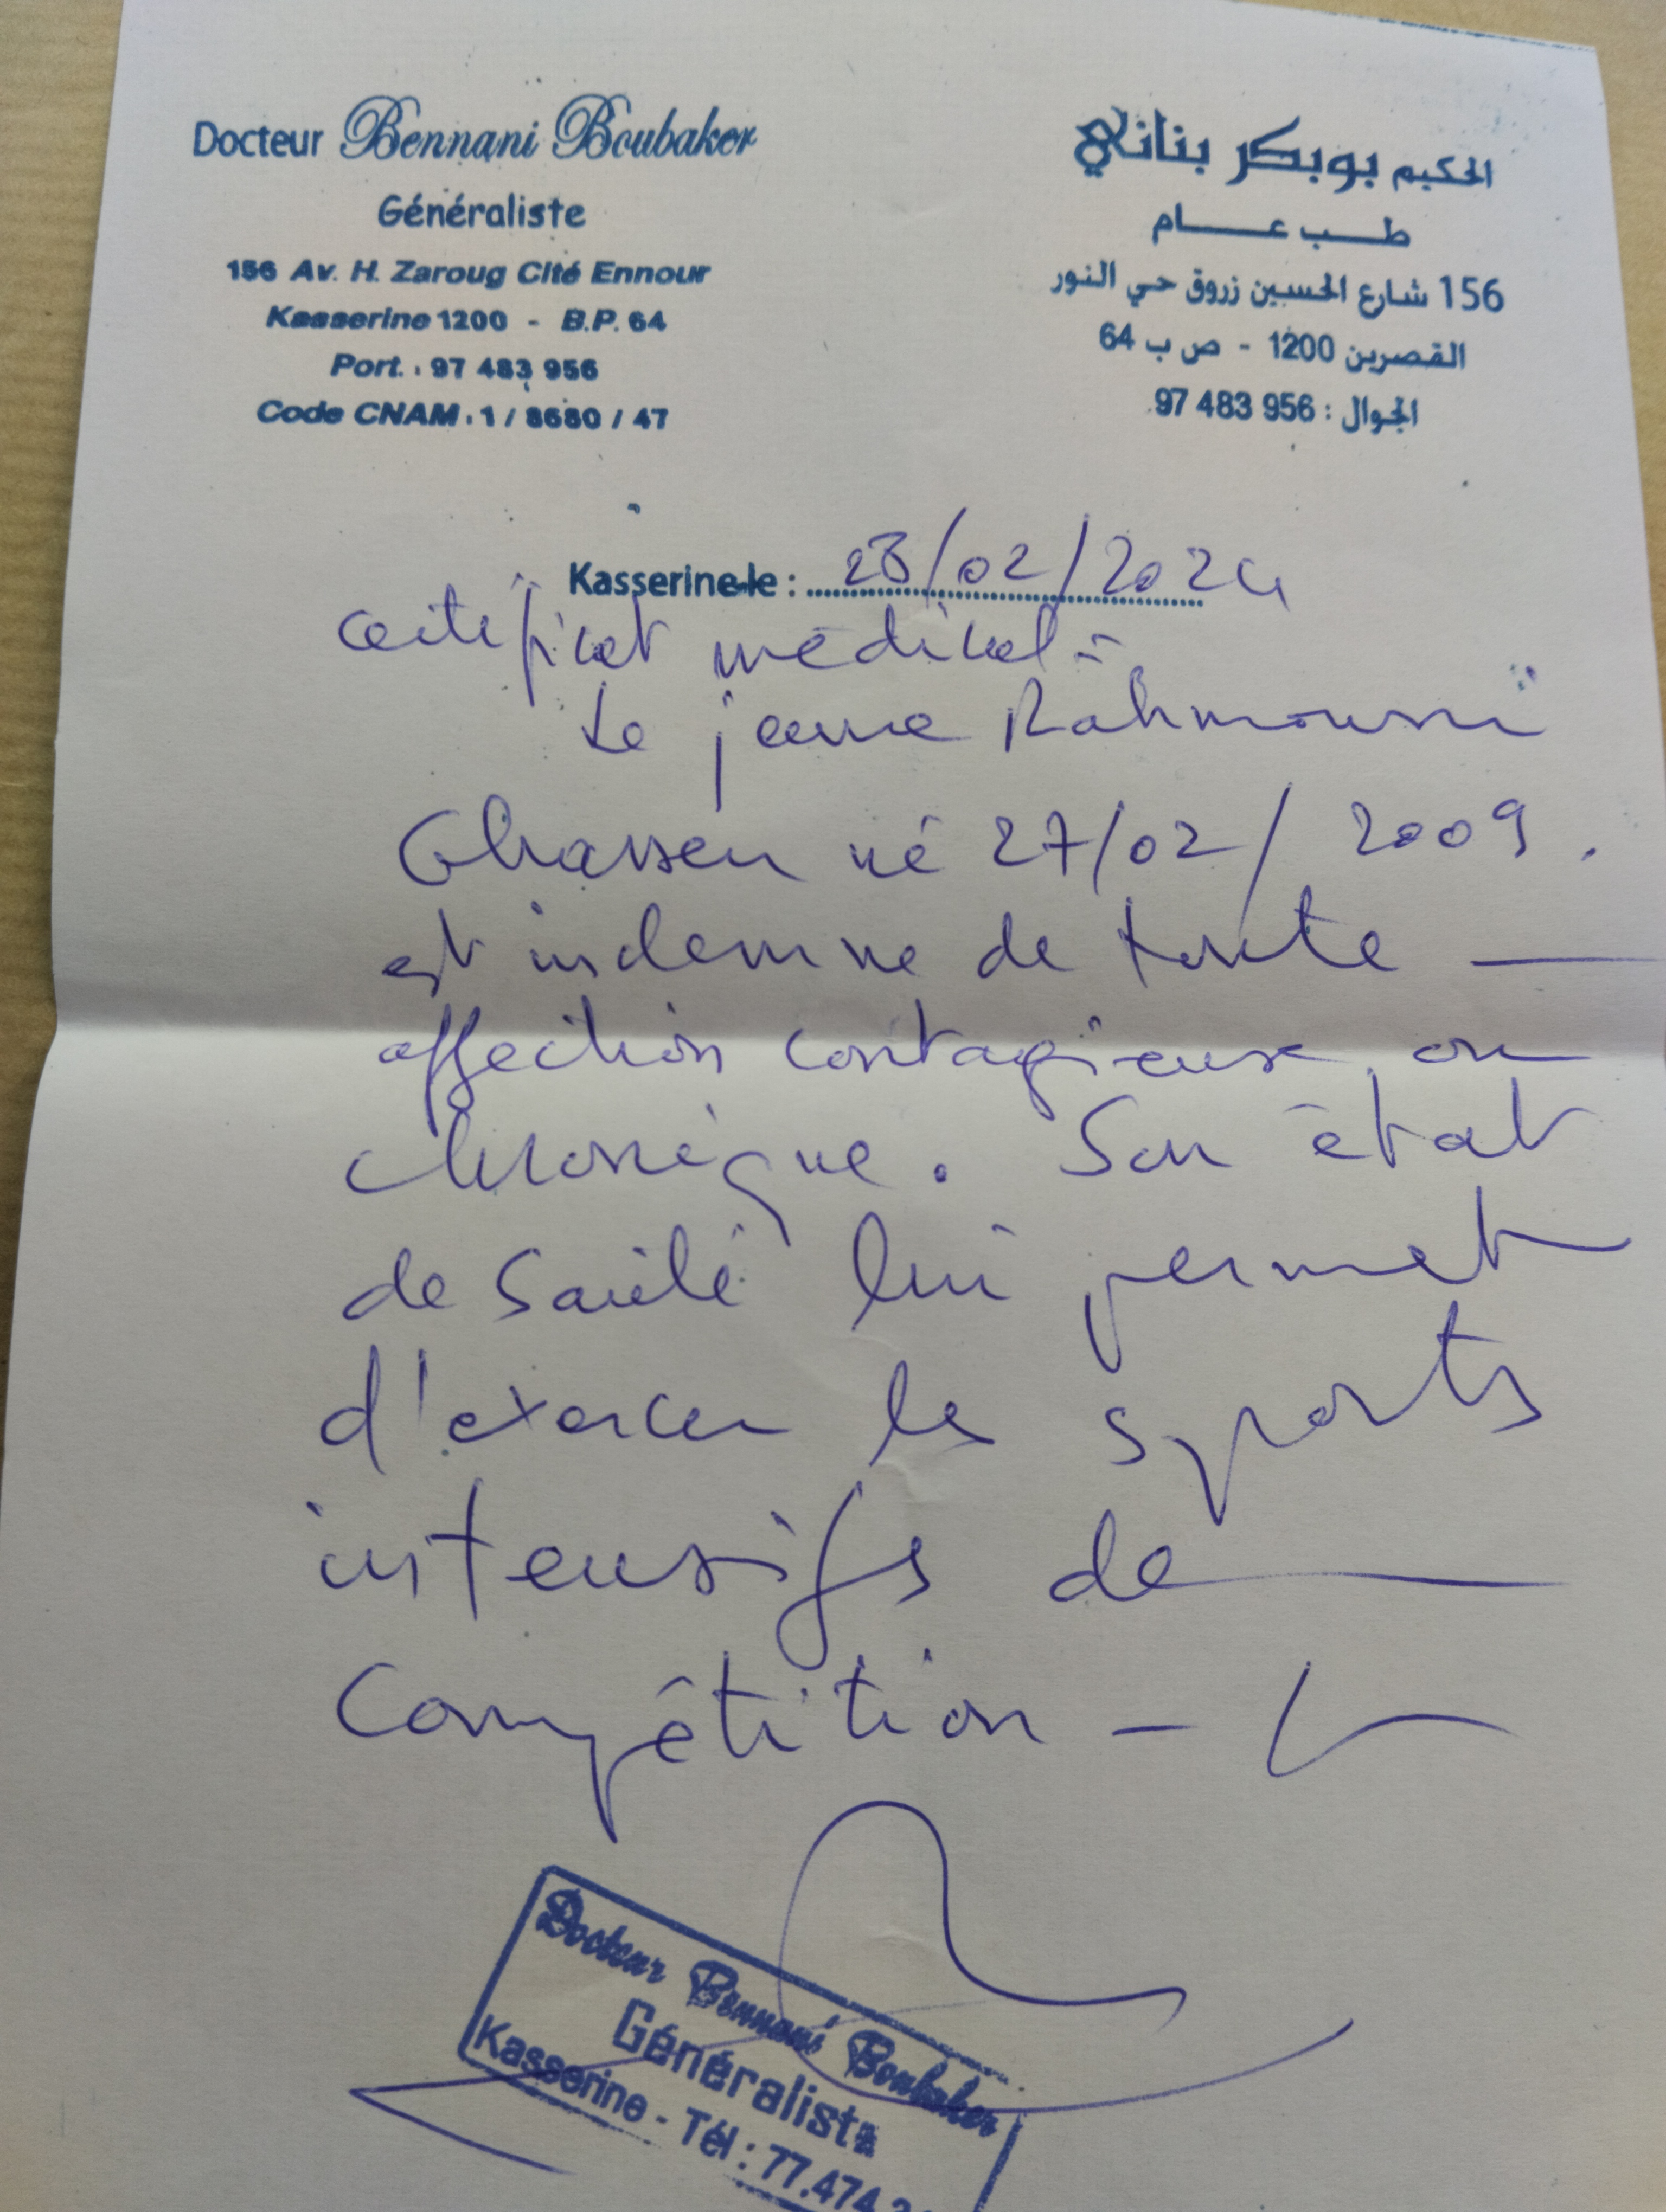 Docteur Bennani Boubaker
Généraliste
156 Av. H. Zaroug Cité Ennour
Kasserine 1200 - B.P. 64
Port. : 97 483 956
Code CNAM : 1 / 8680 / 47
الحكيم بوبكر بناني
طب عام
156 شارع الحسين زروق حي النور
القصرين 1200 - ص ب 64
الجوال : 956 483 97
Kasserine le : 23/02/2024
certificat médical :
Le jeune Rahmouni
Ghassen né 27/02/2009.
est indemne de toute
affection contagieuse ou
chronique. Son état
de Santé lui permet
d'exercer les sports
intensifs de
Compétition -
Docteur Bennani Boubaker
Généraliste
Kasserine - Tél : 77.474